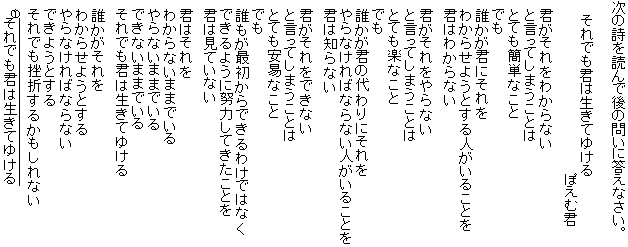 次の詩を読んで後の問いに答えなさい。
それでも君は生きてゆける
ぽえむ君
君がそれをわからない
と言ってしまうことは
とても簡単なこと
でも
誰かが君にそれを
わからせようとする人がいることを
君はわからない
君がそれをやらない
と言ってしまうことは
とても楽なこと
でも
誰かが君の代わりにそれを
やらなければならない人がいることを
君は知らない
君がそれをできない
と言ってしまうことは
とても安易なこと
でも
誰もが最初からできるわけではなく
できるように努力してきたことを
君は見ていない
君はそれを
わからないままでいる
やらないままでいる
できないままでいる
それでも君は生きてゆける
誰かがそれを
わからせようとする
やらなければならない
できようとする
それでも挫折するかもしれない
それでも君は生きてゆける